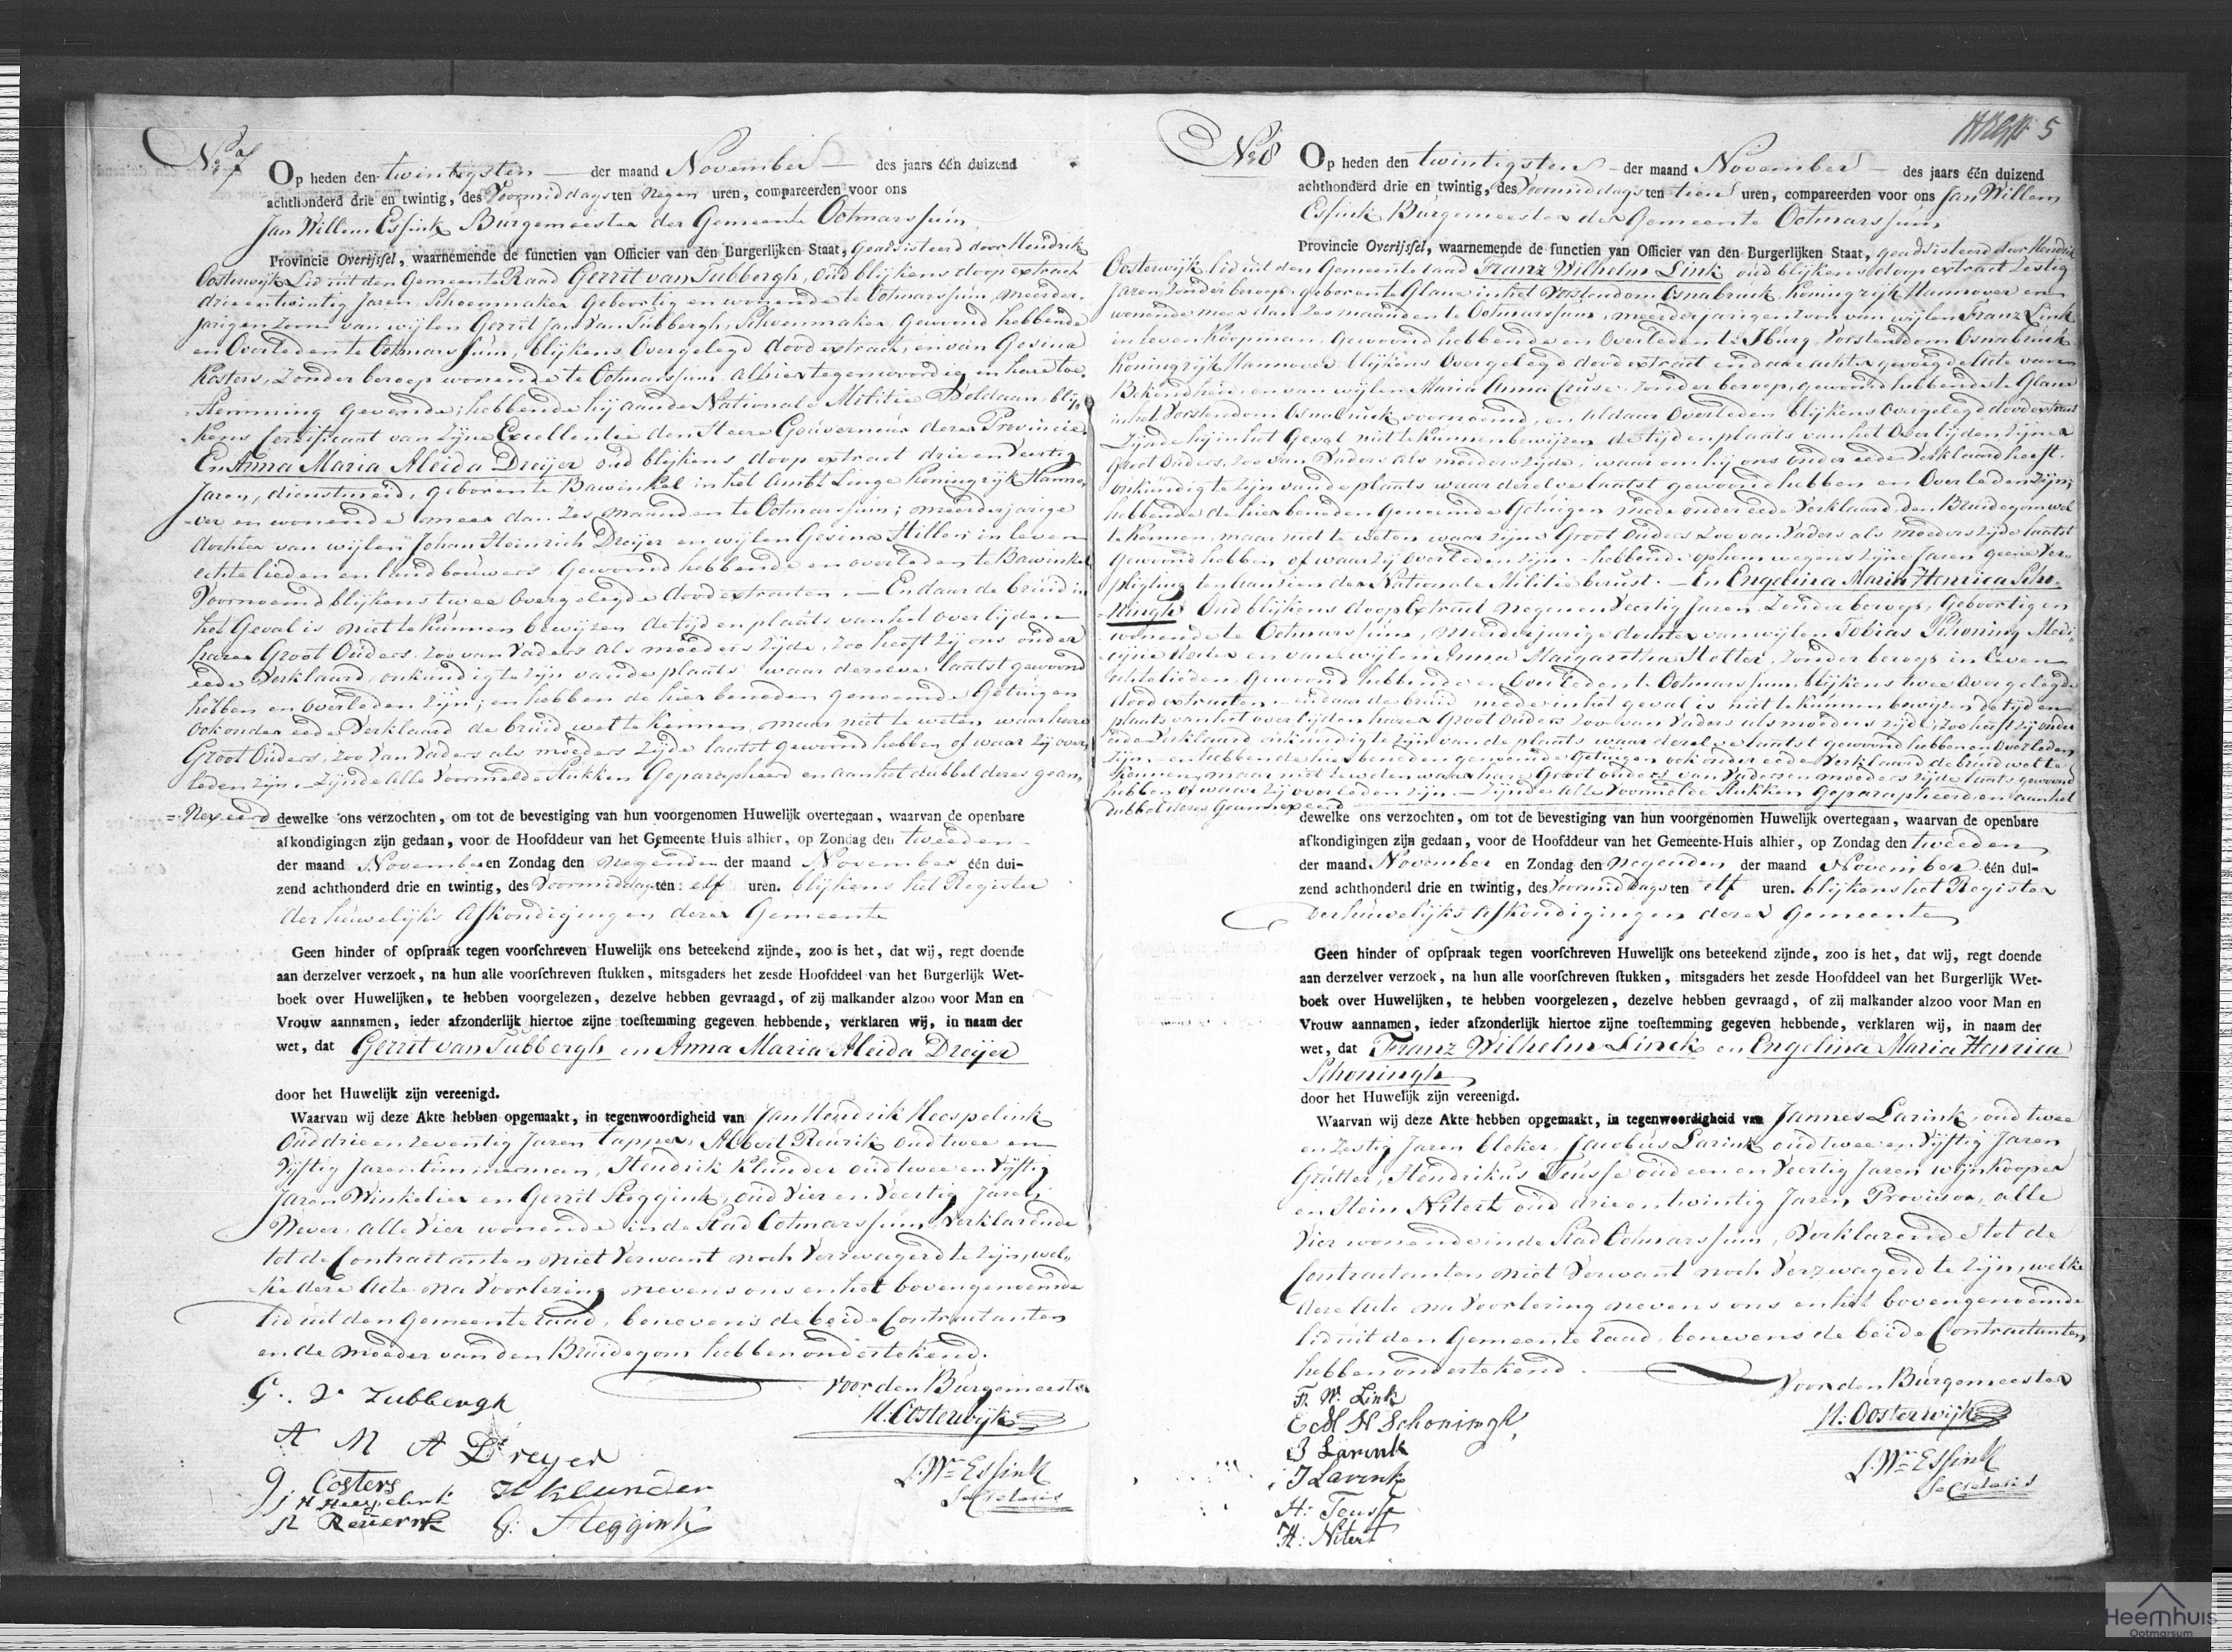 No 7
Op heden den twintigsten der maand November des jaars één duizend
achthonderd drie en twintig, des Voormiddags ten Negen uren, compareerden voor ons
Jan Willem Essink Burgemeester der Gemeente Ootmarssum
Provincie Overijssel, waarnemende de functien van Officier van den Burgerlijken Staat, geadsisteerd door Hendrik
Oosterwijk Lid uit den Gemeente Raad Gerrit van Tubbergh, Oud blijkens doop extract
drie en twintig Jaren, Schoenmaker, geboortig en wonende te Ootmarssum, meerder-
jarigen Zoon van wijlen Gerrit Jan Van Tubbergh, Schoenmaker, gewoond hebbende
en Overleden te Ootmarssum, blijkens Overgelegd dood extract, en van Gesina
Kosters, Zonder beroep wonende te Ootmarssum, alhier tegenwoordig en hare toe-
stemming gevende; hebbende hij aan de Nationale Militie Voldaan, blij-
kens Certificaat van Zijne Excellentie den Heere Gouverneur dezer Provincie.
En Anna Maria Aleida Dreijer oud blijkens doop extract drie en Veertig
Jaren, dienstmeid, geboren te Bawinkel in het Ambt Linge Koningrijk Hanno-
ver en wonende meer dan Zes maanden te Ootmarssum; meerderjarige
dochter van wijlen Johan Heinrich Dreijer en wijlen Gesina Hillen in leven
echtelieden en landbouwers, Gewoond hebbende en overleden te Bawinkel
Voornoemd blijkens twee Overgelegde dood extracten. — En daar de bruid in
het Geval is niet te kunnen bewijzen de tijd en plaats van het overlijden
harer Groot Ouders, zoo van Vaders als moeders Zijde, zoo heeft Zij ons onder
eede Verklaard, onkundig te zijn van de plaats waar dezelve laatst gewoond
hebben en overleden zijn; en hebben de hier beneden genoemde Getuigen
ook onder eede Verklaard de bruid wel te kennen, maar niet te weten waar hare
Groot Ouders, zoo Van Vaders als moeders Zijde laatst gewoond hebben of waar zij over-
leden zijn. — Zijnde alle Voormelde Stukken Geparapheerd en aan het dubbel dezes gean-
nexeerd dewelke ons verzochten, om tot de bevestiging van hun voorgenomen Huwelijk overtegaan, waarvan de openbare
afkondigingen zijn gedaan, voor de Hoofddeur van het Gemeente Huis alhier, op Zondag den tweeden
der maand November en Zondag den Negenden der maand November één dui-
zend achthonderd drie en twintig, des Voormiddags ten elf uren. blijkens het Register
der huwelijks Afkondigingen dezer Gemeente
Geen hinder of opspraak tegen voorschreven Huwelijk ons beteekend zijnde, zoo is het, dat wij, regt doende
aan derzelver verzoek, na hun alle voorschreven stukken, mitsgaders het zesde Hoofddeel van het Burgerlijk Wet-
boek over Huwelijken, te hebben voorgelezen, dezelve hebben gevraagd, of zij malkander alzoo voor Man en
Vrouw aannamen, ieder afzonderlijk hiertoe zijne toestemming gegeven hebbende, verklaren wij, in naam der
wet, dat Gerrit van Tubbergh en Anna Maria Aleida Dreijer
door het Huwelijk zijn vereenigd.
Waarvan wij deze Akte hebben opgemaakt, in tegenwoordigheid van Jan Hendrik Heespelink
Oud drie en zeventig Jaren tapper, Albert Reurik Oud twee en
Vijftig Jaren timmerman, Hendrik Klunder oud twee en Vijftig
Jaren Winkelier en Gerrit Steggink, oud Vier en Veertig Jaren
Wever, alle Vier wonende in de Stad Ootmarssum, Verklarende
tot de Contractanten niet Verwant noch Verzwagerd te zijn, wel-
ke deze Acte na Voorlezing nevens ons en het bovengenoemde
lid uit den Gemeente raad, benevens de beide Contractanten
en de Moeder van den Bruidegom hebben ondertekend.
G. V. Tubbergh
Voor den Burgemeester
H. Oosterwijk
A M A Dreyer
J. Wm Essink
Secretaris
G. Costers
H Klunder
A Reuerink
G. Steggink
5
No 8
Op heden den twintigsten der maand November des jaars één duizend
achthonderd drie en twintig, des Voormiddags ten tien uren, compareerden voor ons Jan Willem
Essink Burgemeester der Gemeente Ootmarssum
Provincie Overijssel, waarnemende de functien van Officier van den Burgerlijken Staat, geadsisteerd door Hendrik
Oosterwijk lid uit den Gemeente raad Franz Wilhelm Link oud blijkens doop extract Zestig
Jaren, Zonder beroep, geboren te Glane in het Vorstendom Osnabruck, Koningrijk Hannover en
wonende meer dan Zes maanden te Ootmarssum, meerderjarigen Zoon van wijlen Franz Link
in leven Koopman, gewoond hebbende en Overleden te Iburg, Vorstendom Osnabruck
Koningrijk Hannover blijkens Overgelegd dood extract en daar achter gevoegde Acte van
Bekendheid, en van wijlen Maria Anna Cruse, Zonder beroep, gewoond hebbende te Glane
in het Vorstendom Osnabruck voornoemd, en aldaar Overleden blijkens Overgelegd dood extract
Zijnde hij in het Geval niet te kunnen bewijzen de tijd en plaats van het Overlijden Zijner
Groot Ouders, zoo van Vaders als moeders zijde, waarom hij ons onder eede Verklaard heeft,
onkundig te zijn van de plaats waar dezelve laatst gewoond hebben en Overleden zijn;
hebbende de hier beneden Genoemde Getuigen mede onder eede Verklaard den Bruidegom wel
te kennen, maar niet te weten waar zijne Groot Ouders Zoo van Vaders als moeders zijde laatst
gewoond hebben of waar zij Overleden zijn. — hebbende op hem wegens zijne Jaren geene Ver-
pligting ten aanzien der Nationale Militie berust. — En Engelina Maria Henrica Scho-
ningh Oud blijkens doop Extract negen en Veertig Jaren, Zonder beroep, Geboortig en
wonende te Ootmarssum, meerderjarige dochter van wijlen Tobias Schoning Medi-
cijne Doctor en van wijlen Anna Margaretha Stetter, Zonder beroep in leven
echtelieden, Gewoond hebbende en Overleden te Ootmarssum, blijkens twee Overgelegde
dood extracten. — en daar de bruid mede in het geval is niet te kunnen bewijzen de tijd en
plaats van het overlijden harer Groot Ouders Zoo van Vaders als moeders zijde, zoo heeft zij onder
eede Verklaard onkundig te zijn van de plaats waar dezelve laatst gewoond hebben en Overleden
zijn, en hebbende hier beneden genoemde Getuigen ook onder eede Verklaard de bruid wel te
kennen, maar niet te weten waar hare Groot ouders van Vaders en moeders zijde laatst gewoond
hebben of waar zij overleden zijn. — Zijnde Alle Voormelde Stukken Geparapheerd en aan het
dubbel dezes Geannexeerd
dewelke ons verzochten, om tot de bevestiging van hun voorgenomen Huwelijk overtegaan, waarvan de openbare
afkondigingen zijn gedaan, voor de Hoofddeur van het Gemeente-Huis alhier, op Zondag den tweeden
der maand November en Zondag den Negenden der maand November één dui-
zend achthonderd drie en twintig, des Voormiddags ten elf uren. blijkens het Register
der huwelijks Afkondigingen dezer Gemeente
Geen hinder of opspraak tegen voorschreven Huwelijk ons beteekend zijnde, zoo is het, dat wij, regt doende
aan derzelver verzoek, na hun alle voorschreven stukken, mitsgaders het zesde Hoofddeel van het Burgerlijk Wet-
boek over Huwelijken, te hebben voorgelezen, dezelve hebben gevraagd, of zij malkander alzoo voor Man en
Vrouw aannamen, ieder afzonderlijk hiertoe zijne toestemming gegeven hebbende, verklaren wij, in naam der
wet, dat Franz Wilhelm Linck en Engelina Maria Henrica
Schoningh
door het Huwelijk zijn vereenigd.
Waarvan wij deze Akte hebben opgemaakt, in tegenwoordigheid van Jannes Larink, oud twee
en Zestig Jaren bleker, Jacobus Larink oud twee en Vijftig Jaren
Grutter, Hendrikus Teusse oud een en Veertig Jaren wijnkooper
en Hein Nitert oud drie en twintig Jaren, Provisor, alle
Vier wonende in de Stad Ootmarssum, Verklarende tot de
Contractanten niet Verwant noch Verzwagerd te zijn, welke
deze Acte na Voorlezing nevens ons en het bovengenoemde
lid uit den Gemeente raad, benevens de beide Contractanten
hebben ondertekend.
Voor den Burgemeester
F. W. Link
E M H Schoningh
H. Oosterwijk
J Larink
J Larink
J. Wm Essink
Secretaris
H. Teusse
H. Nitert
Heemhuis
Ootmarsum